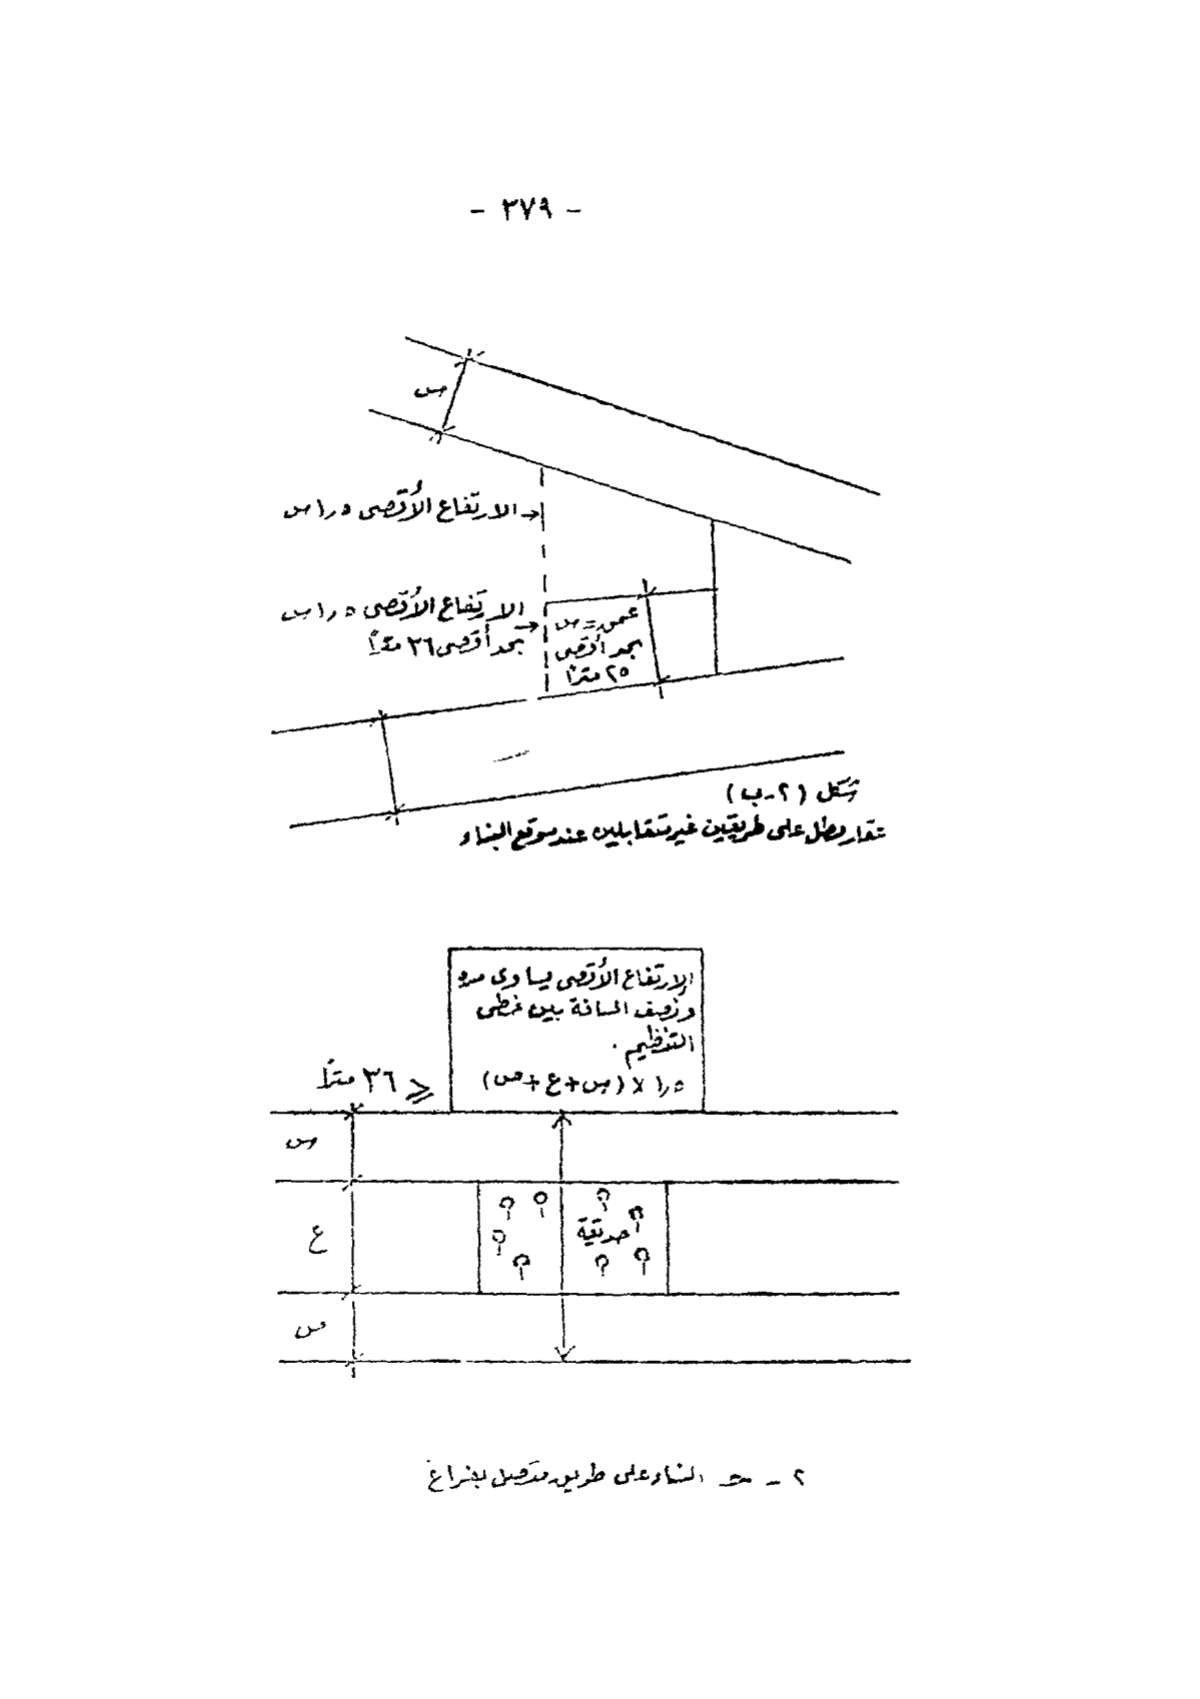 - ٣٧٩ -
ص
الارتفاع الأقصى ٥ر١ ص
الارتفاع الأقصى ٥ر١ س
بحد أقصى ٣٦ متراً
عمق = س
بحد أقصى
٢٥ متراً
شكل (٢-ب)
عقار مطل على طريقين غير متقابلين عند موقع البناء
الارتفاع الأقصى يساوى مره
ونصف المسافة بين خطى
التنظيم .
٥ر١ × (س + ع + ص)
≥ ٣٦ متراً
س
ع
حديقة
ص
٢ - ج البناء على طريق متصل بفراغ